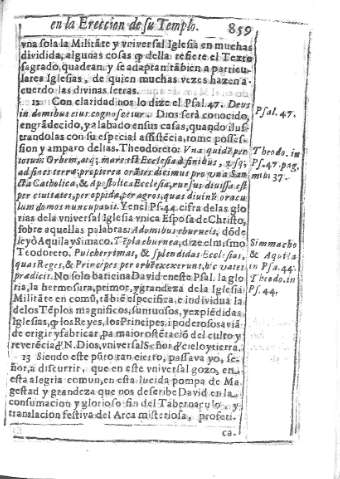 en la Ereccion de su Templo. 859
vna sola la Militãte y vniversal Iglesia en muchas
dividida, algunas cosas q̃ della refiere el Texto
sagrado, quadran, y se adaptan tãbien a particu-
lares Iglesias, de quien muchas vezes hazen a-
cuerdo las divinas letras.
12 Con claridad nos lo dize el Psal. 47. Deus
in domibus eius cognoscetur. Dios serà conocido,
engrãdecido, y alabado en sus casas, quando ilus-
trandolas con su especial assistẽcia, tome posses-
sion y amparo dellas. Theodoreto: Vna quidẽ per
totum Orbem, atq; mare est Ecclesia à finibus,
ad fines terræ: propterea orãtes dicimus pro vna San
cta Catholica, & Apostolica Ecclesia, rursus divisa est
per civitates, per oppida, per agros, quas divinũ oracu
lum domos nuncupavit. Y en el Ps. 44. cifra de las glo
rias de la vniversal Iglesia vnica Esposa de Christo,
sobre aquellas palabras: A domibus eburneis, dõde
leyò Aquila y Simaco. Tẽpla eburnea, dize el mismo
Teodoreto. Pulcherrimas, & splendidas Ecclesias,
quas Reges, & Principes per orbẽ exerunt, hic vates
prædicit. No solo baticina David en este Psal. la glo
ria, la hermosura, primor, y grandeza de la Iglesia
Militãte en comũ, tãbiẽ especifica, e individua la
de los Tẽplos magnificos, suntuosos, y explẽdidas
Iglesias, q̃ los Reyes, los Principes, i poderosos aviã
de erigir y fabricar, pa maior ostẽtaciõ del culto y
reverẽcia d̃ N. Dios, vniversal Señor d̃ cielo y tierra.
13 Siendo este pũto tan cierto, passava yo, se-
ñor, a discurrir, que en este vniversal gozo, en
esta alegria comun, en esta lucida pompa de Ma-
gestad y grandeza que nos describe David en la
consumacion y glorioso fin del Tabernaculo, y
translacion festiva del Arca misteriosa, profeti-
ca-
Psal. 47.
Theodo. in
Ps. 47. pag.
mihi 37.
Simmacho
& Aquila
in Psa. 44.
Theodo. in
Ps. 44.